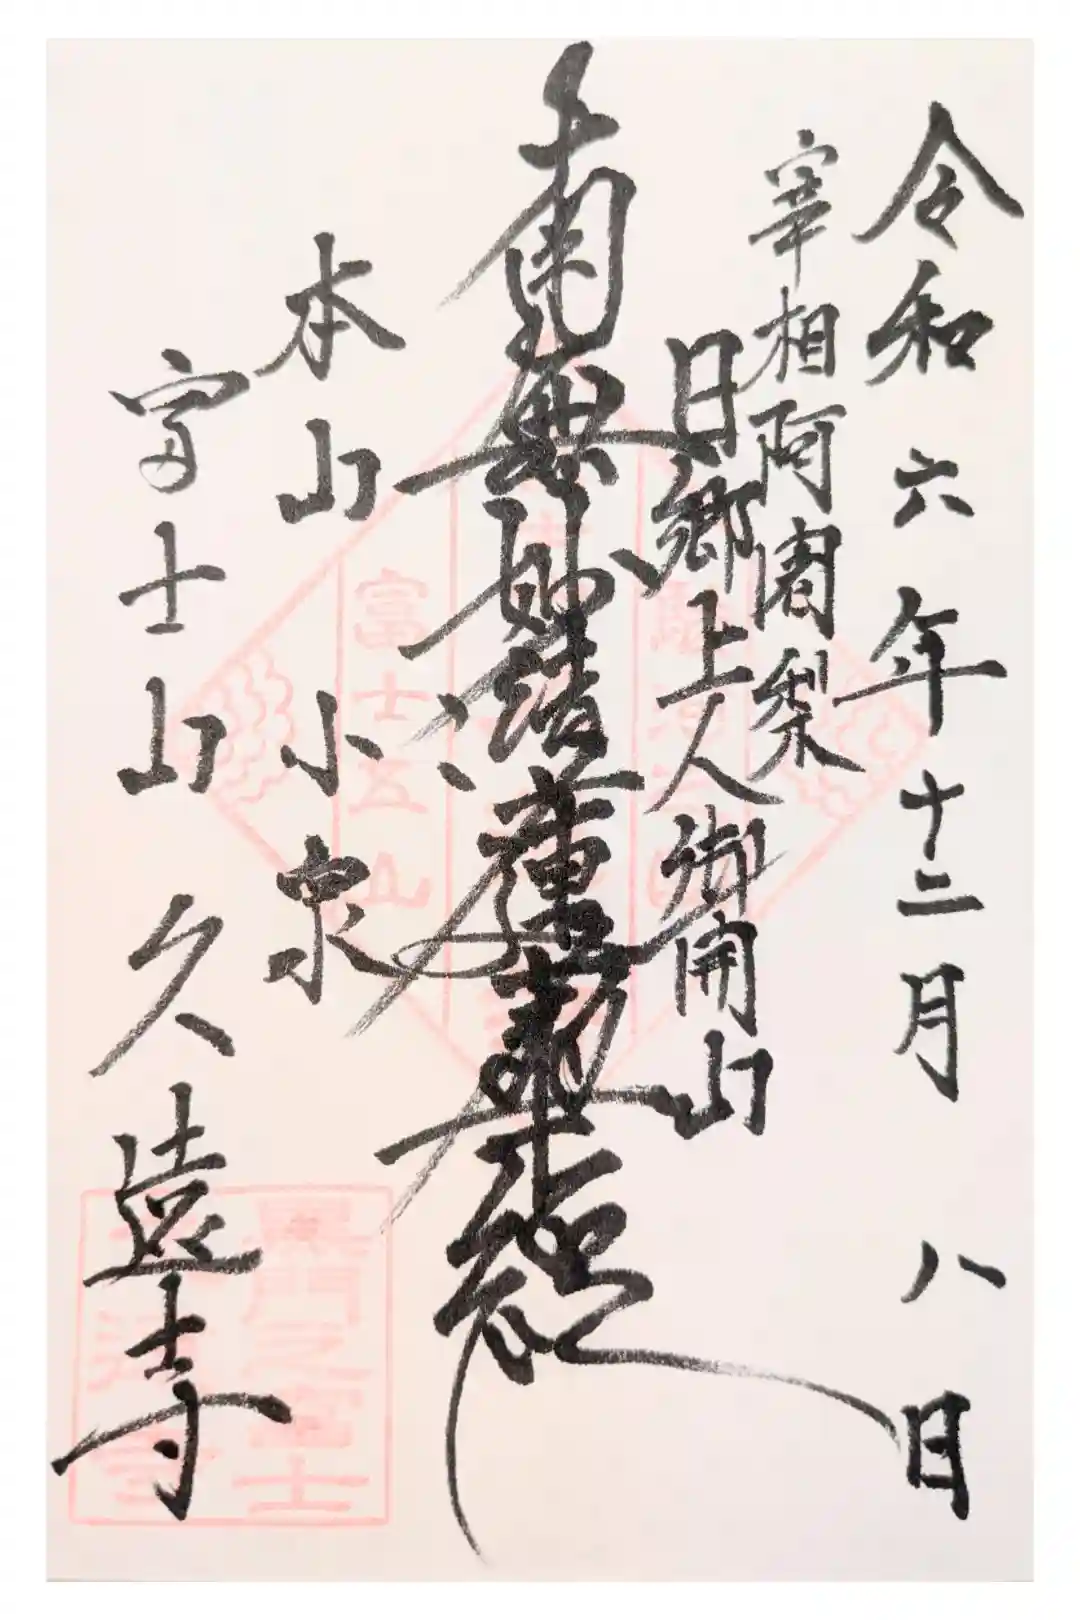 令和六年十二月八日
宰相阿闍梨
日郷上人御開山
南無妙法蓮華経
本山 小泉
富士山 久遠寺
富士五山